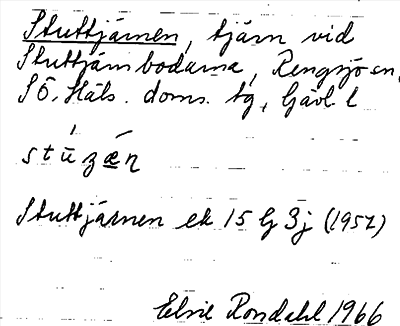 Stuttjärnen, tjärn vid
Stuttjärnbodarna, Rengsjö sn,
SÖ. Häls. doms. tg, Gävl. l
stūzǽ̠n
Stuttjärnen ek 15 G 3j (1957)
Elsie Rondahl 1966